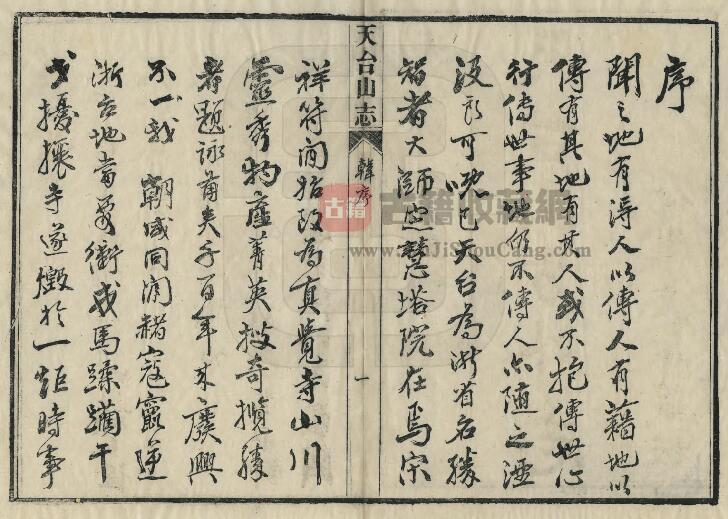 序
聞之地有得人以傳人有藉地以
傳有其地有其人或不抱傳世心
行傳世事地仍不傳人亦随之湮
没良可唲已天台為浙省名勝
智者大師定慧塔院在焉宋
天台山志
韓序
一
祥符间始改為真覺寺山川
靈秀物産菁英搜奇攬勝
者題詠甫矣千百年来廢興
不一我朝咸同间赭寇竄逆
浙右地當要衝戎馬蹂躏干
戈擾攘寺遂燬於一炬時事
古籍
古籍收藏網
www.GuJiShouCang.com